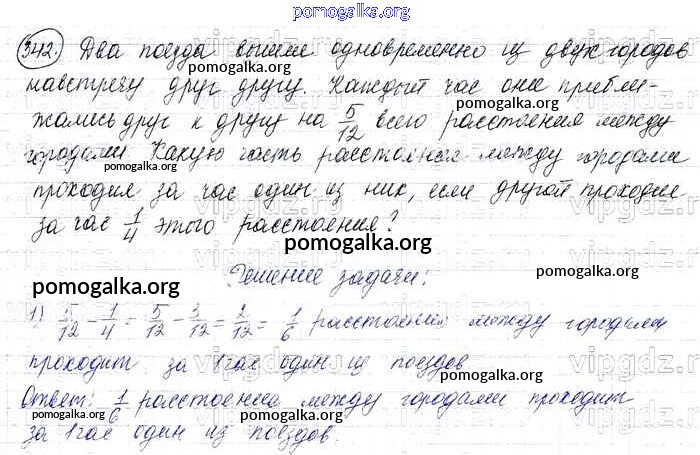 pomogalka.org
342. Два поезда вышли одновременно из двух городов
навстречу друг другу. Каждый час они прибли-
pomogalka.org
pomogalka.org
жались друг к другу на 5/12 всего расстояния между
pomogalka.org
городами. Какую часть расстояния между городами
pomogalka.org
pomogalka.org
проходил за час один из них, если другой проходил
за час 1/4 этого расстояния?
pomogalka.org
pomogalka.org
Решение задачи:
pomogalka.org
pomogalka.org
1) 5/12 - 1/4 = 5/12 - 3/12 = 2/12 = 1/6 расстояния между городами
проходит за 1 час один из поездов
pomogalka.org
Ответ: 1/6 расстояния между городами проходит
pomogalka.org
pomogalka.org
за 1 час один из поездов.
vipgdz.ru
vipgdz.ru